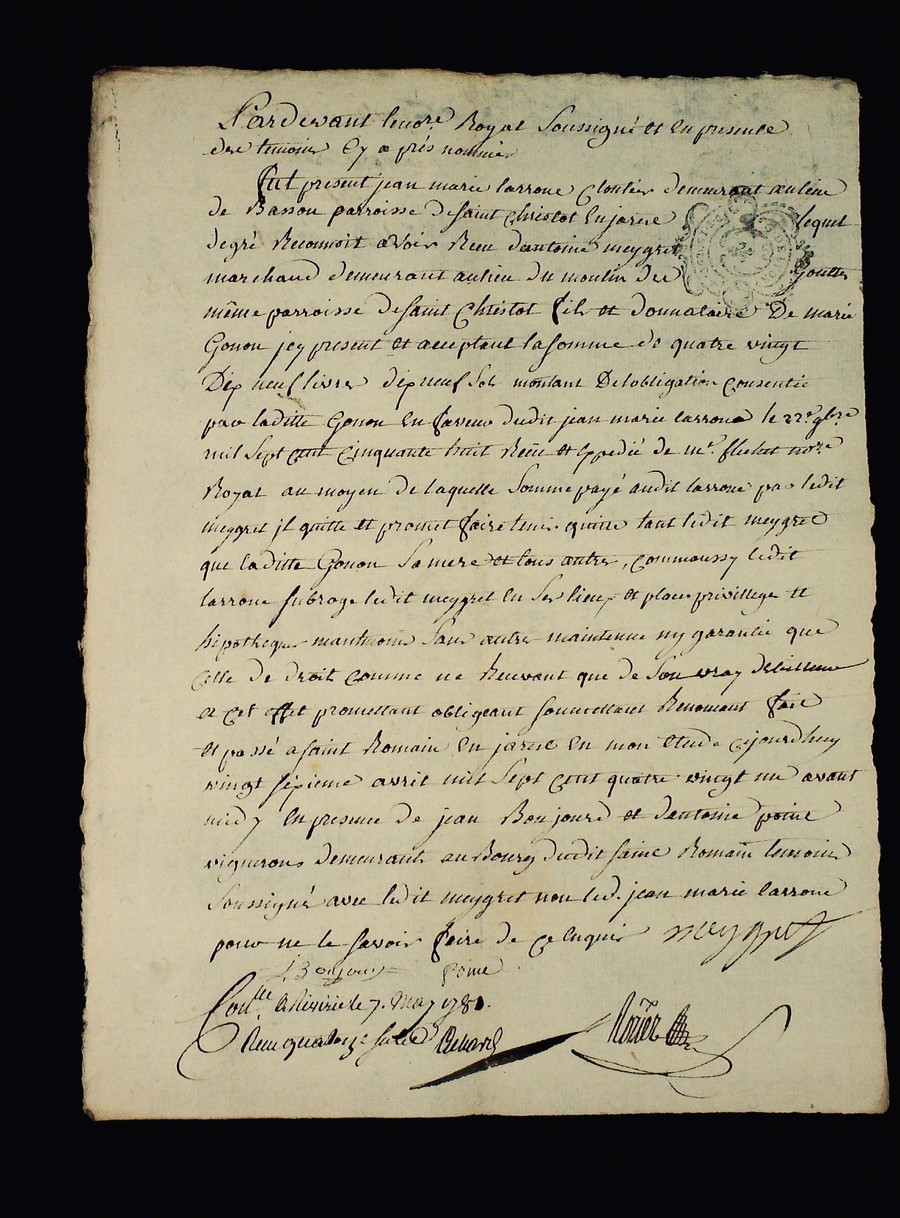 Pardevant lenore. Royal Soussigné et En presence
des temoins Cy aprés nommés
fut present jean marie Larroue Cloutier demeurant aulieu
de Basson parroisse desaint Christot Enjarese lequel
degré Reconnoit avoir Receu dantoine meygret
marchand demeurant aulieu du moulin des Gouttes
même parroisse desaint Christot fils et donnataire De marie
Gonon jcy present et acceptant lasomme de quatre vingt
Dix neuf livres dixneuf Sols montant Delobligation Consentie
par laditte Gonon En faveur dudit jean marie Larroue le 22e. 9bre
mil Sept cent Cinquante huit Receu et Expedié de me. flechet nore
Royal au moyen de laquelle Somme payé audit Larroue par ledit
meygret jl quitte et promet faire tenir quitte tant ledit meygret
que laditte Gonon Samere et tous autres, Commaussy ledit
Larroue subroge ledit meygret En Ses lieux et place privillege et
hipotheques neantmoins Sans autre maintenue ny garantie que
Celle de droit Comme ne Recevant que de Son vray debiteur
a Cet effet promettant obligeant soumettant Renoncant fait
et passé a Saint Romain En jarese En mon etude Cejourdhuy
vingt sixieme avril mil Sept Cent quatre vingt un avant
midy En presence de jean Bonjour et dantoine poine
vignerons demeurants au Bourg dudit Saint Romain temoins
Soussignés avec ledit meygret non led. jean marie Larroue
pour ne le Savoir faire de Ce Enquis meygret
Bonjour poine
Conlle. a Rivirie le 7. May 1781.
Receu quatorze sols